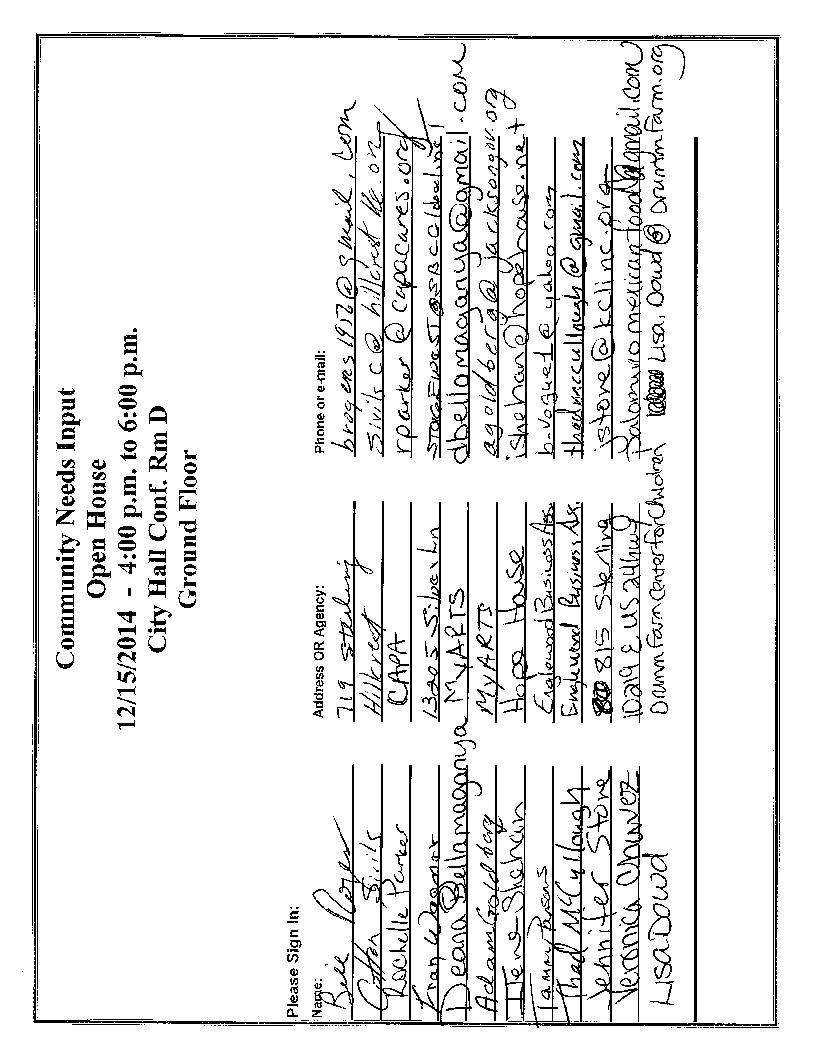 Community Needs Input
Open House
12/15/2014 - 4:00 p.m. to 6:00 p.m.
City Hall Conf. Rm D
Ground Floor
Please Sign In:
Name: Address OR Agency: Phone or e-mail:
Bill 719 Sterling brogers1912@gmail.com
Cotton Sivils Hillcrest
Rochelle Parker CAPA rparker@capacares.org
Fran 13205
Deana Bellamaganya MyARTS dbellamaganya@gmail.com
Adam Goldberg MyARTS agoldberg@jacksongov.org
Ilene Shehan Hope House ishehan@hopehouse.net
Tammy Parsons Englewood Business As. b-voguet@yahoo.com
Thad McCullough Englewood Business As. thadmccullough@gmail.com
Jennifer Stone 815 Sterling jstone@kclinc.org
Veronica Chavez 10219 E US 24 Hwy
Lisa Dowd Drumm Farm Center For Children Lisa.Dowd@DrummFarm.org